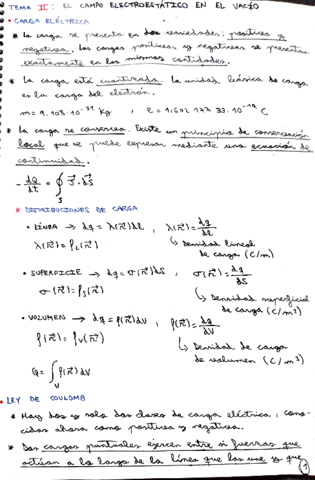 TEMA II: EL CAMPO ELECTROSTÁTICO EN EL VACÍO
• CARGA ELÉCTRICA
* La carga se presenta en dos variedades: positiva y
negativa. Las cargas positivas y negativas se presentan
exactamente en las mismas cantidades.
* La carga está cuantizada. La unidad básica de carga
es la carga del electrón.
m = 9.108·10⁻³¹ kg , e = 1,602 177 33·10⁻¹⁹ C
* La carga se conserva. Existe un principio de conservación
local que se puede expresar mediante una ecuación de
continuidad.
- dQ/dt = ∮_S J⃗·dS⃗
* DISTRIBUCIONES DE CARGA
• LÍNEA → dq = λ(r⃗)dl , λ(r⃗) = dq/dl
λ(r⃗) = ρ_L(r⃗) ↳ Densidad lineal
de carga (C/m)
• SUPERFICIE → dq = σ(r⃗)dS , σ(r⃗) = dq/dS
σ(r⃗) = ρ_S(r⃗) ↳ Densidad superficial
de carga (C/m²)
• VOLUMEN → dq = ρ(r⃗)dV , ρ(r⃗) = dq/dV
ρ(r⃗) = ρ_V(r⃗) ↳ Densidad de carga
de volumen (C/m³)
Q = ∫_V ρ(r⃗)dV
• LEY DE COULOMB
* Hay dos y solo dos clases de carga eléctrica, cono-
cidas ahora como positiva y negativa.
* Dos cargas puntuales ejercen entre sí fuerzas que
actúan a lo largo de la línea que las une y que
1